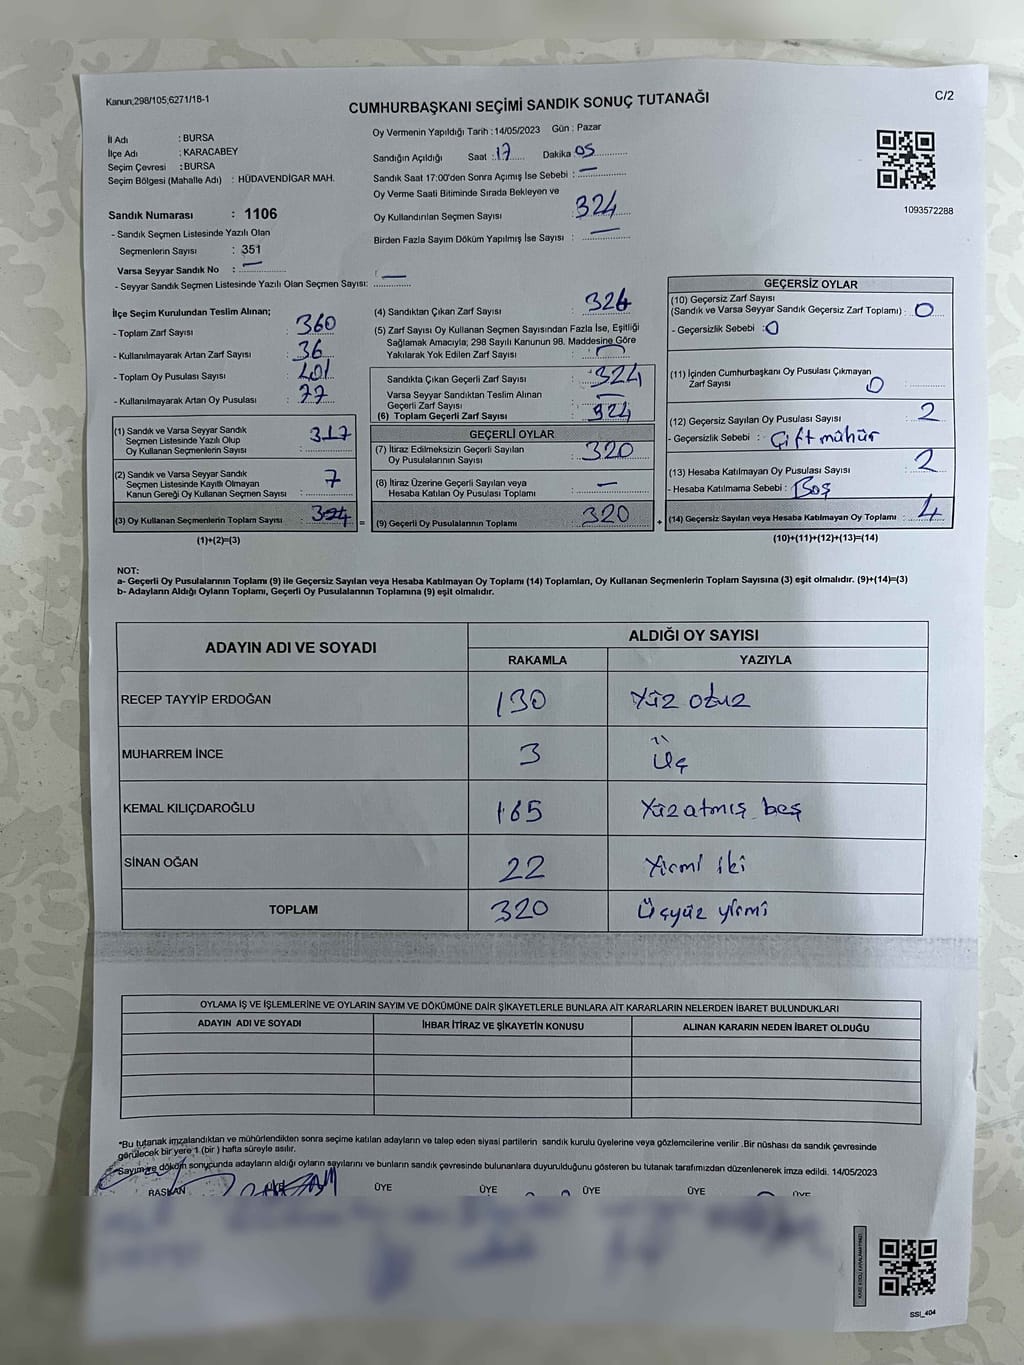 Kanun;298/105;6271/18-1
C/2
CUMHURBAŞKANI SEÇİMİ SANDIK SONUÇ TUTANAĞI
İl Adı : BURSA
İlçe Adı : KARACABEY
Seçim Çevresi : BURSA
Seçim Bölgesi (Mahalle Adı) : HÜDAVENDİGAR MAH.
Sandık Numarası : 1106
- Sandık Seçmen Listesinde Yazılı Olan
Seçmenlerin Sayısı : 351
Varsa Seyyar Sandık No : —
- Seyyar Sandık Seçmen Listesinde Yazılı Olan Seçmen Sayısı: —
Oy Vermenin Yapıldığı Tarih : 14/05/2023 Gün : Pazar
Sandığın Açıldığı Saat : 17 Dakika 05
Sandık Saat 17:00'den Sonra Açımış İse Sebebi : —
Oy Verme Saati Bitiminde Sırada Bekleyen ve
Oy Kullandırılan Seçmen Sayısı : 324
Birden Fazla Sayım Döküm Yapılmış İse Sayısı : —
1093572288
İlçe Seçim Kurulundan Teslim Alınan;
- Toplam Zarf Sayısı : 360
- Kullanılmayarak Artan Zarf Sayısı : 36
- Toplam Oy Pusulası Sayısı : 401
- Kullanılmayarak Artan Oy Pusulası : 77
(1) Sandık ve Varsa Seyyar Sandık
Seçmen Listesinde Yazılı Olup
Oy Kullanan Seçmenlerin Sayısı : 317
(2) Sandık ve Varsa Seyyar Sandık
Seçmen Listesinde Kayıtlı Olmayan
Kanun Gereği Oy Kullanan Seçmen Sayısı : 7
(3) Oy Kullanan Seçmenlerin Toplam Sayısı : 324 =
(1)+(2)=(3)
(4) Sandıktan Çıkan Zarf Sayısı : 324
(5) Zarf Sayısı Oy Kullanan Seçmen Sayısından Fazla İse, Eşitliği
Sağlamak Amacıyla; 298 Sayılı Kanunun 98. Maddesine Göre
Yakılarak Yok Edilen Zarf Sayısı : —
Sandıkta Çıkan Geçerli Zarf Sayısı : 324
Varsa Seyyar Sandıktan Teslim Alınan
Geçerli Zarf Sayısı : —
(6) Toplam Geçerli Zarf Sayısı : 324
GEÇERLİ OYLAR
(7) İtiraz Edilmeksizin Geçerli Sayılan
Oy Pusulalarının Sayısı : 320
(8) İtiraz Üzerine Geçerli Sayılan veya
Hesaba Katılan Oy Pusulası Toplamı : —
(9) Geçerli Oy Pusulalarının Toplamı : 320 +
GEÇERSİZ OYLAR
(10) Geçersiz Zarf Sayısı
(Sandık ve Varsa Seyyar Sandık Geçersiz Zarf Toplamı) : 0
- Geçersizlik Sebebi : 0
(11) İçinden Cumhurbaşkanı Oy Pusulası Çıkmayan
Zarf Sayısı : 0
(12) Geçersiz Sayılan Oy Pusulası Sayısı : 2
- Geçersizlik Sebebi : Çift mühür
(13) Hesaba Katılmayan Oy Pusulası Sayısı : 2
- Hesaba Katılmama Sebebi : Boş
(14) Geçersiz Sayılan veya Hesaba Katılmayan Oy Toplamı : 4
(10)+(11)+(12)+(13)=(14)
NOT:
a- Geçerli Oy Pusulalarının Toplamı (9) ile Geçersiz Sayılan veya Hesaba Katılmayan Oy Toplamı (14) Toplamları, Oy Kullanan Seçmenlerin Toplam Sayısına (3) eşit olmalıdır. (9)+(14)=(3)
b- Adayların Aldığı Oyların Toplamı, Geçerli Oy Pusulalarının Toplamına (9) eşit olmalıdır.
ADAYIN ADI VE SOYADI ALDIĞI OY SAYISI
RAKAMLA YAZIYLA
RECEP TAYYİP ERDOĞAN 130 Yüz otuz
MUHARREM İNCE 3 Üç
KEMAL KILIÇDAROĞLU 165 Yüz atmış beş
SİNAN OĞAN 22 Yirmi iki
TOPLAM 320 Üçyüz yirmi
OYLAMA İŞ VE İŞLEMLERİNE VE OYLARIN SAYIM VE DÖKÜMÜNE DAİR ŞİKAYETLERLE BUNLARA AİT KARARLARIN NELERDEN İBARET BULUNDUKLARI
ADAYIN ADI VE SOYADI İHBAR İTİRAZ VE ŞİKAYETİN KONUSU ALINAN KARARIN NEDEN İBARET OLDUĞU
*Bu tutanak imzalandıktan ve mühürlendikten sonra seçime katılan adayların ve talep eden siyasi partilerin sandık kurulu üyelerine veya gözlemcilerine verilir .Bir nüshası da sandık çevresinde
görülecek bir yere 1 (bir ) hafta süreyle asılır.
*Sayım ve döküm sonucunda adayların aldığı oyların sayılarını ve bunların sandık çevresinde bulunanlara duyurulduğunu gösteren bu tutanak tarafımızdan düzenlenerek imza edildi. 14/05/2023
BAŞKAN ÜYE ÜYE ÜYE ÜYE ÜYE
SSI_404